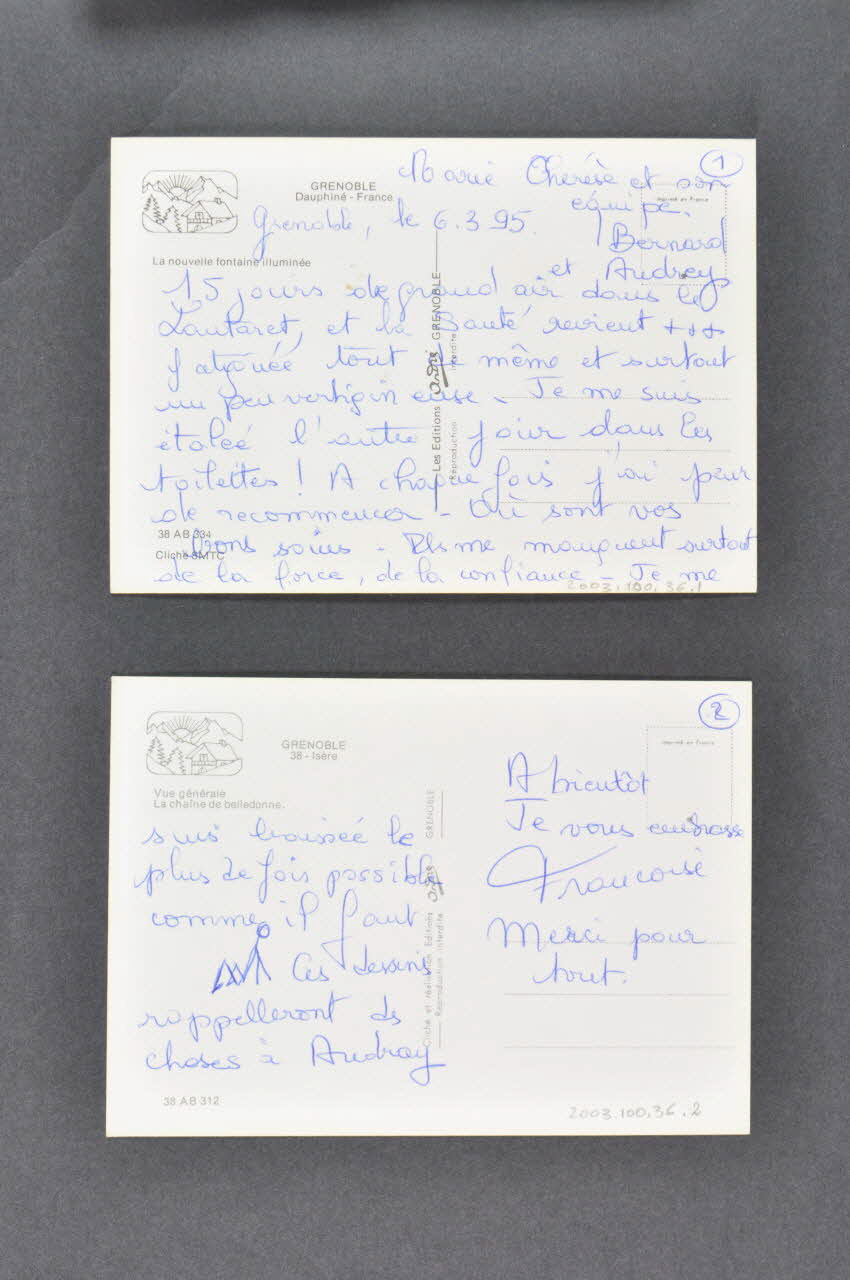 1
Marie Thérèse et son
équipe.
GRENOBLE
Dauphiné - France
Imprimé en France
Grenoble, le 6.3.95.
Bernard
et Audrey
La nouvelle fontaine illuminée
15 jours de grand air dans le
Lautaret, et la santé revient +++
fatiguée tout de même et surtout
un peu vertigineuse - Je me suis
étalée l'autre jour dans les
toilettes ! A chaque fois j'ai peur
de recommencer - Où sont vos
bons soins - Ils me manquent surtout
de la force, de la confiance - Je me
38 AB 334
Cliché SMTC
Les Editions André GRENOBLE
Reproduction interdite
2003.100.36.1
2
GRENOBLE
38 - Isère
Imprimé en France
Vue générale
La chaîne de belledonne.
suis baissée le
plus de fois possible
comme il faut
Ces dessins
rappelleront des
choses à Audray
A bientôt
Je vous embrasse
Françoise
Merci pour
tout.
Cliché et réalisation Editions André GRENOBLE
Reproduction interdite
38 AB 312
2003.100.36.2